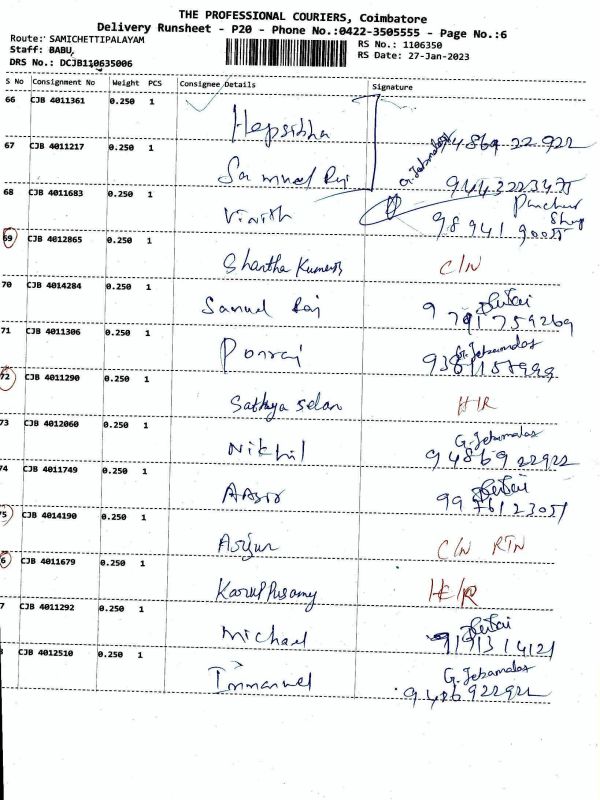 THE PROFESSIONAL COURIERS, Coimbatore
Delivery Runsheet - P20 - Phone No.:0422-3505555 - Page No.:6
Route: SAMICHETTIPALAYAM
Staff: BABU,
DRS No.: DCJB110635006
RS No.: 1106350
RS Date: 27-Jan-2023
S No Consignment No Weight PCS Consignee Details Signature
66 CJB 4011361 0.250 1
Hepsibha 9486922922
67 CJB 4011217 0.250 1
Samuel Raj G. Jebamalas 9443223475
68 CJB 4011683 0.250 1
Vinith 98941 90055
69 CJB 4012865 0.250 1
Shantha Kumar C/N
70 CJB 4014284 0.250 1
Samuel Raj 9791759269
71 CJB 4011306 0.250 1
Ponraj G. Jebamalas
72 CJB 4011290 0.250 1
Sathya Selan H/R
73 CJB 4012060 0.250 1
Nikhil G. Jebamalas 9486922922
74 CJB 4011749 0.250 1
75 CJB 4014190 0.250 1
Arjun C/N RTN
6 CJB 4011679 0.250 1
Karuppusamy
7 CJB 4011292 0.250 1
Michael
CJB 4012510 0.250 1
Immanuel G. Jebamalas 9486922922